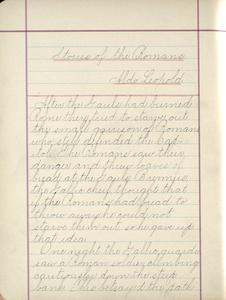 Stories of the Romans
Aldo Leopold
After the Gauls had burned
Rome they tried to starve out
the small garrison of Romans
who still defended the Cap-
itol. The Romans saw their
danger and threw loaves of
bread at the Gauls.
the Gallic chief thought that
if the Romans had bread to
throw away he could not
starve them out so he gave up
that idea.
One night the Gallic guards
saw a Roman soldier climbing
cautiously down the steep
bank. This betrayed the path